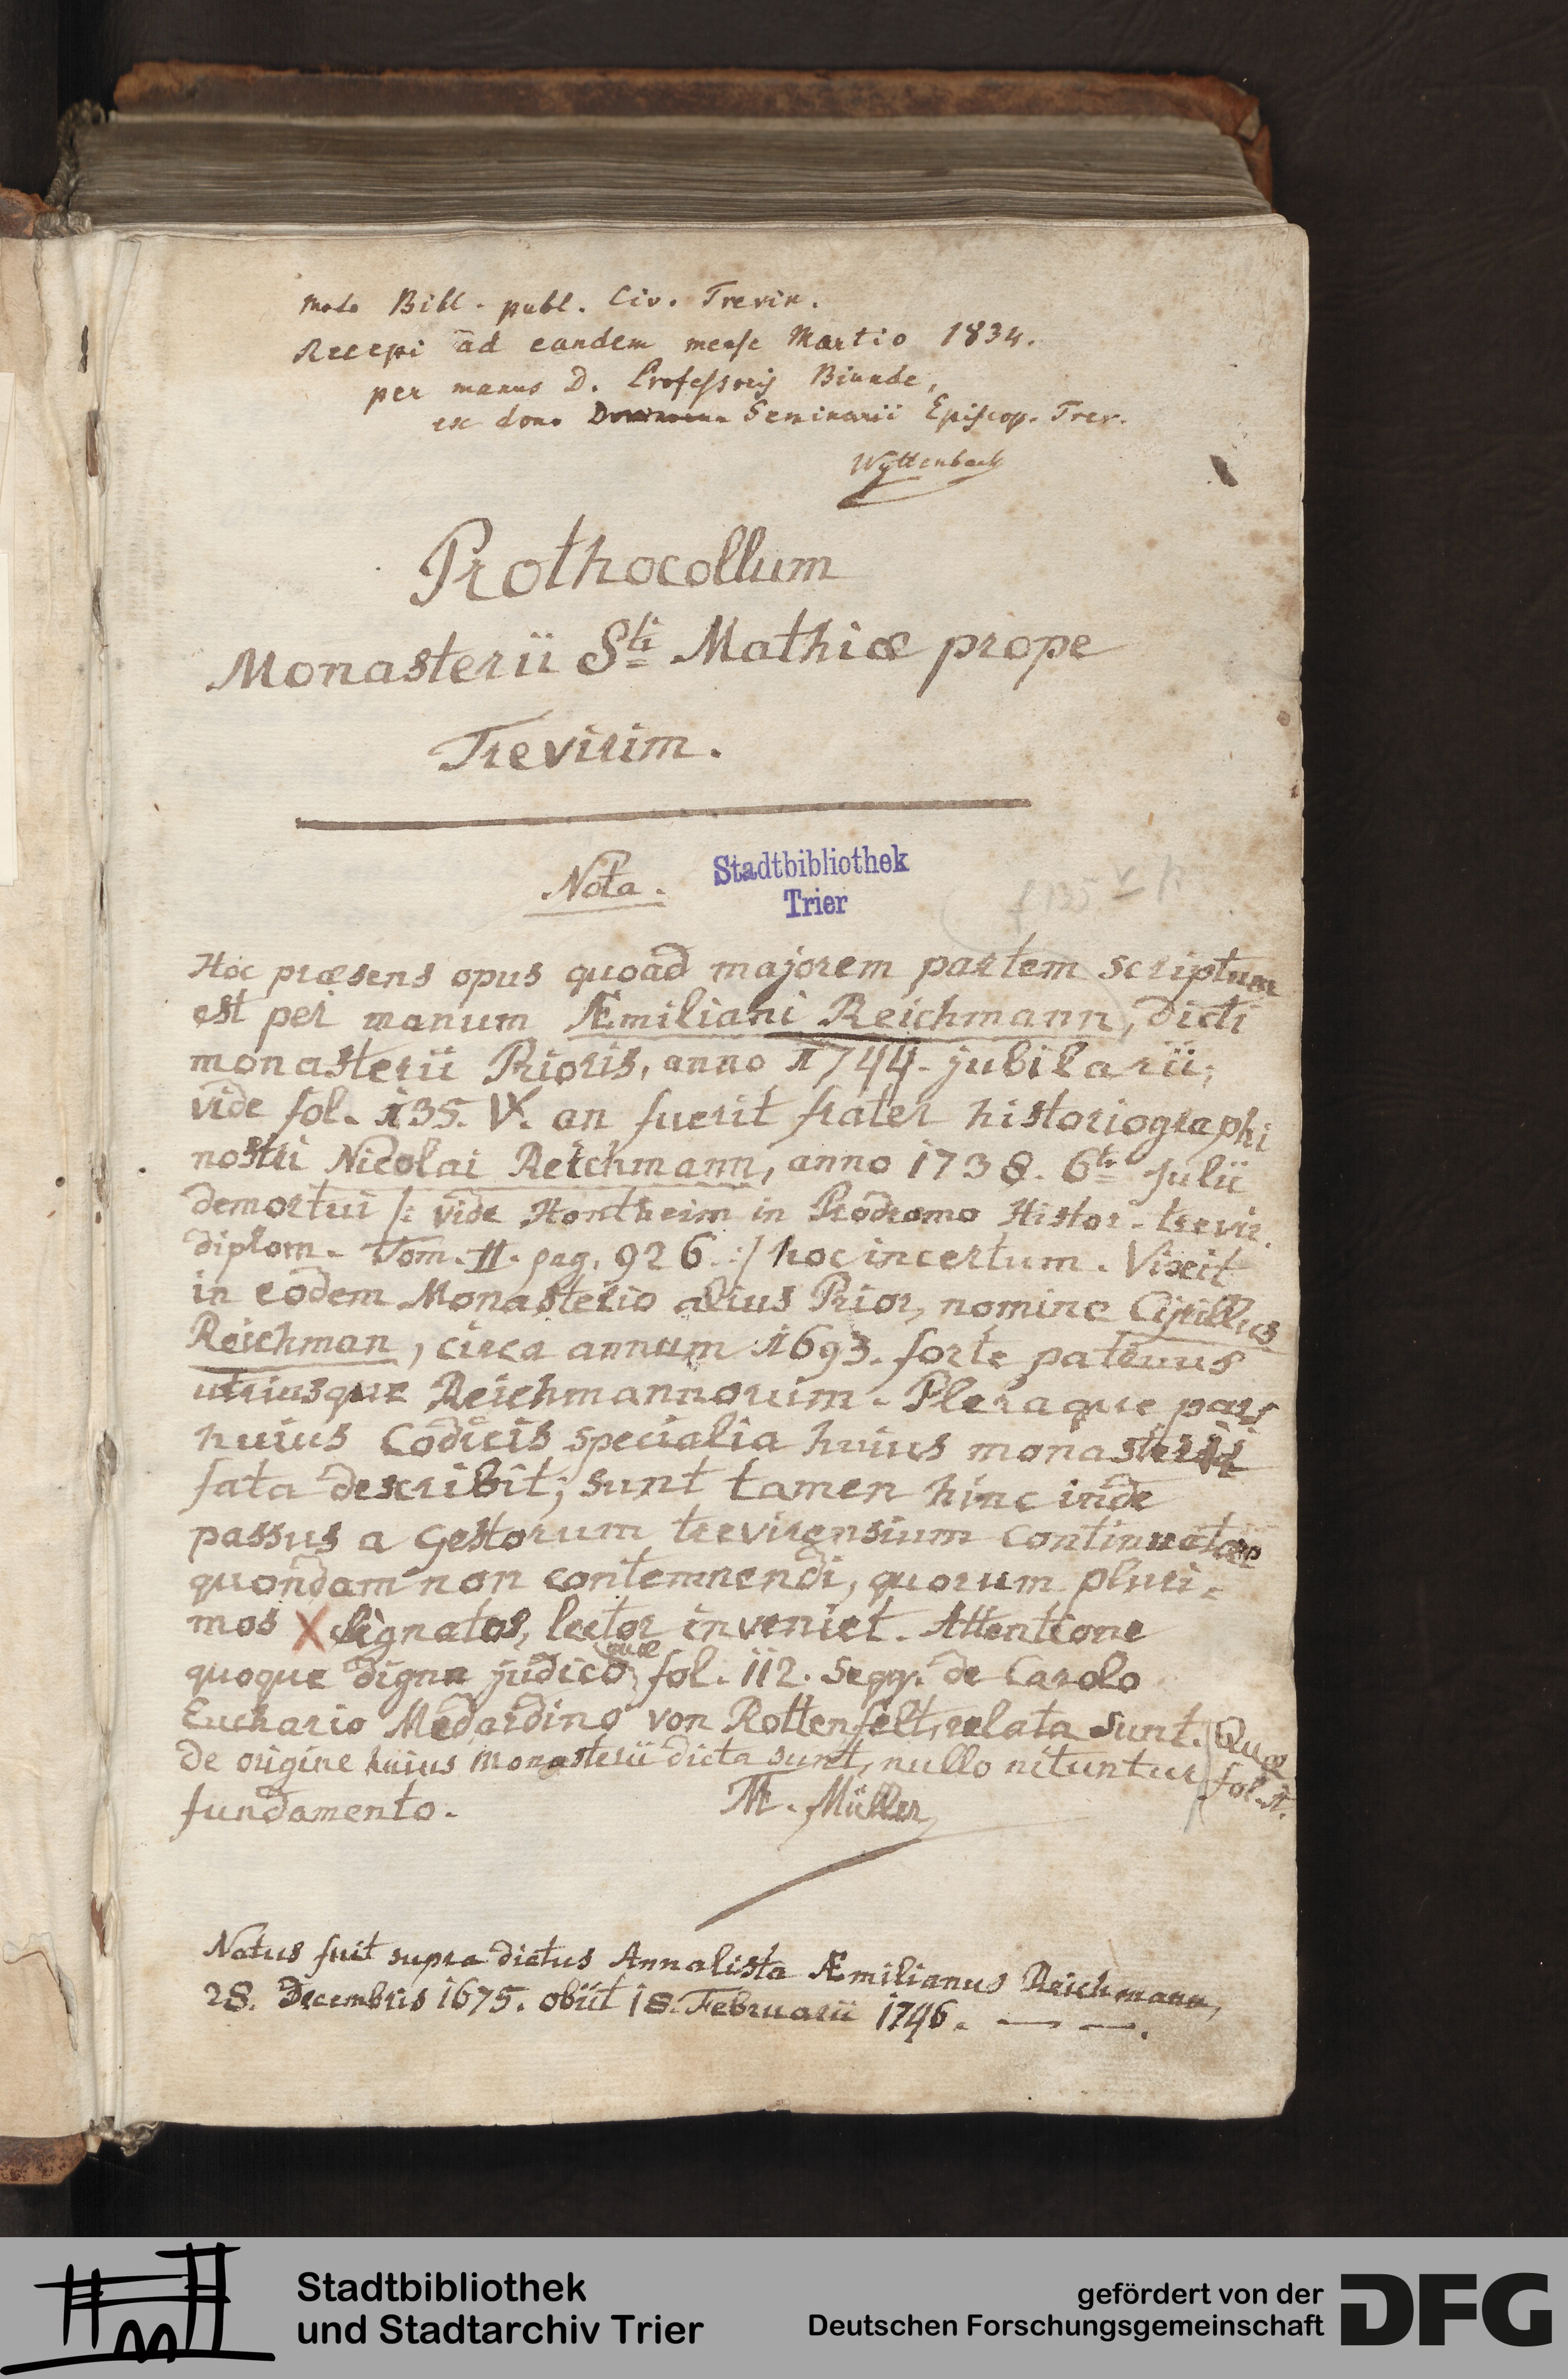 modo Bibl. publ. Civ. Trevir.
Recepi ad eandem mense Martio 1834.
per manus D. Professoris Biunde,
ex dono Seminarii Episcop. Trev.
Wyttenbach
Prothocollum
Monasterii Sti Mathiæ prope
Trevirim.
Nota.
Stadtbibliothek
Trier
Hoc præsens opus quoad majorem partem scriptum
est per manum Æmiliani Reichmann, dicti
monasterii Prioris, anno 1744. jubilarii;
vide fol. 135. V. an fuerit frater historiographi
nostri Nicolai Reichmann, anno 1738. 6ta Julii
demortui /: vide Hontheim in Prodromo Histor. trevir.
diplom. Tom. II. pag. 926. :/ hoc incertum. Vixit
in eodem Monasterio alius Prior, nomine Cirillus
Reichman, circa annum 1693. forte patruus
utriusque Reichmannorum. Pleraque pars
huius Codicis specialia huius monasterii
fata describit; sunt tamen hinc inde
passus a Gestorum trevirensium Continuatore
quondam non contemnendi, quorum pluri-
mos X signatos, lector inveniet. Attentione
quoque digna judico, quæ fol. 112. seqq. de Carolo
Euchario Medardino von Rottenfelt, relata sunt. Quæ
fol. 1.
de origine huius monasterii dicta sunt, nullo nituntur
fundamento.
M. Müller
Natus fuit supra dictus Annalista Æmilianus Reichmann,
28. Decembris 1675. obiit 18. Februarii 1746. — —.
Stadtbibliothek
und Stadtarchiv Trier
gefördert von der
Deutschen Forschungsgemeinschaft
DFG